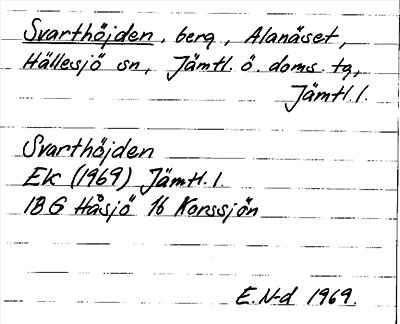 Svarthöjden, berg, Alanäset,
Hällesjö sn, Jämtl. ö. doms. tg,
Jämtl. l.
Svarthöjden
Ek (1969) Jämtl. l.
18G Håsjö 1b Korssjön
E.N-d 1969.